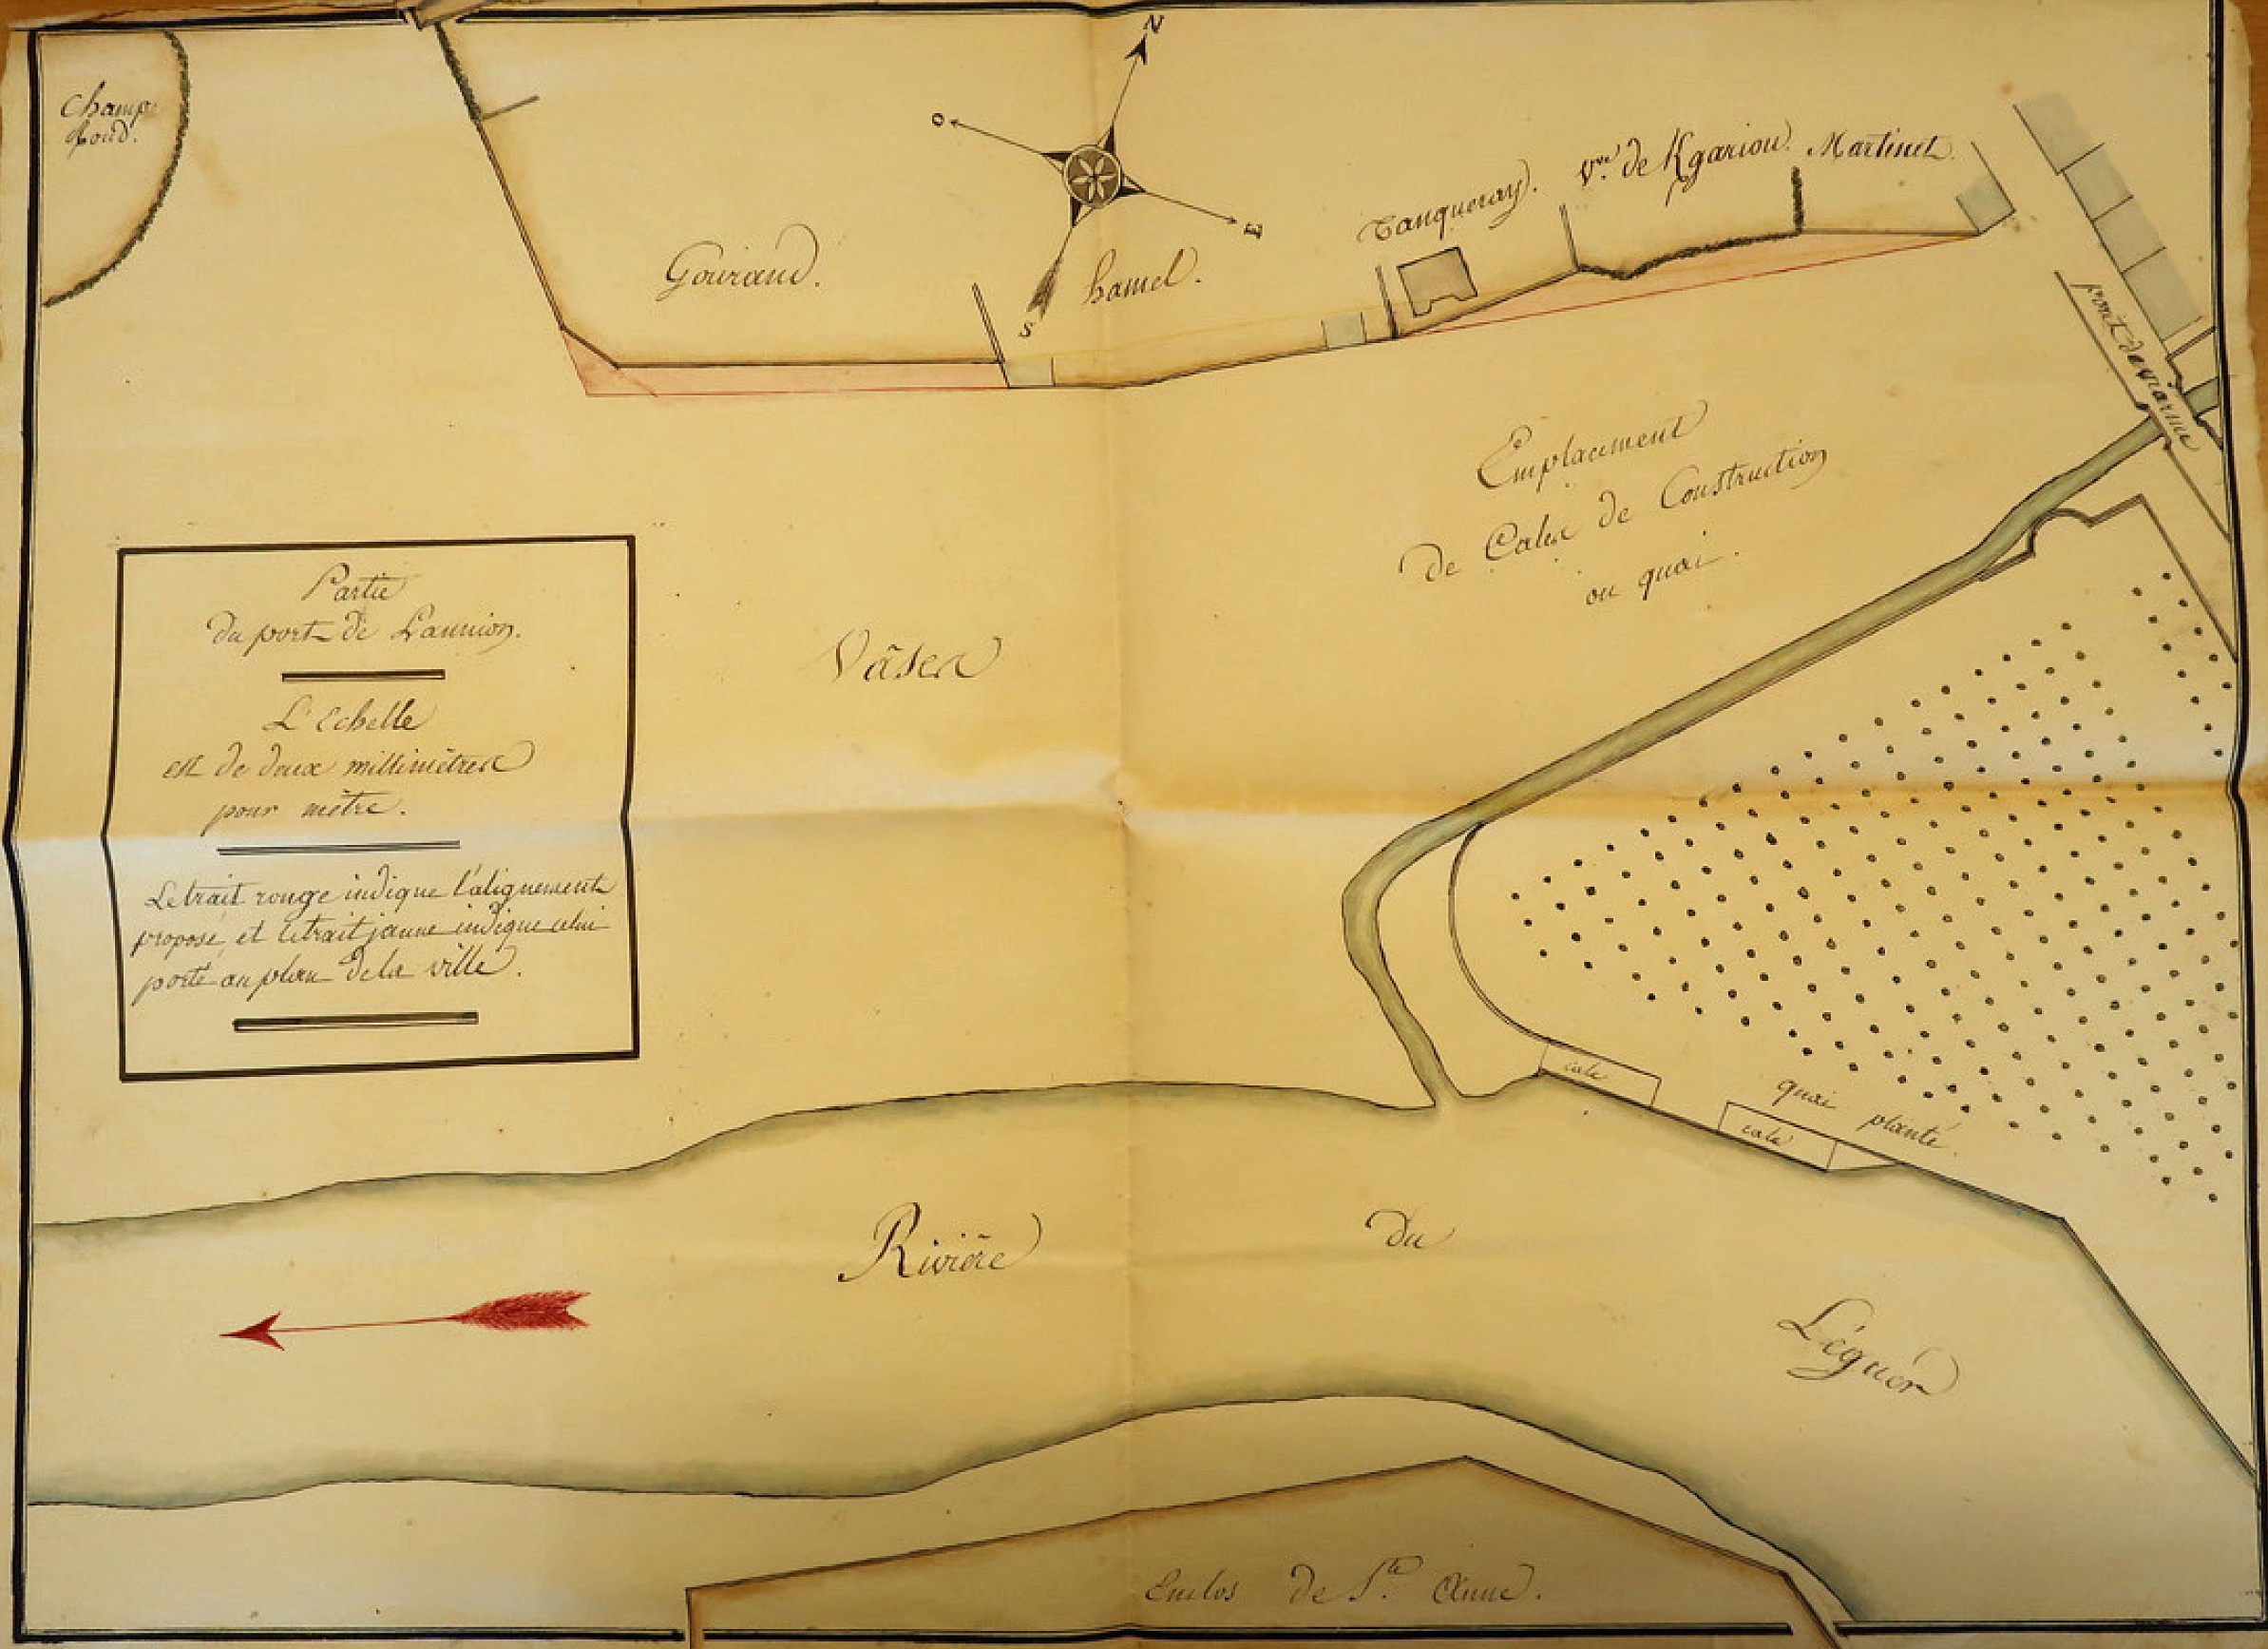 Champ
fond.
N
O
E
S
Gouraud.
hamel.
Tanqueray.
Vve. de Kgariou.
Martinet.
pont de viarme
Emplacement
de Cales de Construction
ou quai.
Vâses
Partie
du port de Lannion.
L'Echelle
est de deux millimètres
pour mètre.
Le trait rouge indique l'alignement
proposé, et le trait jaune indique celui
porté au plan de la ville.
cale
quai planté.
cale
Rivière du Léguér
Enclos de Ste. Anne.